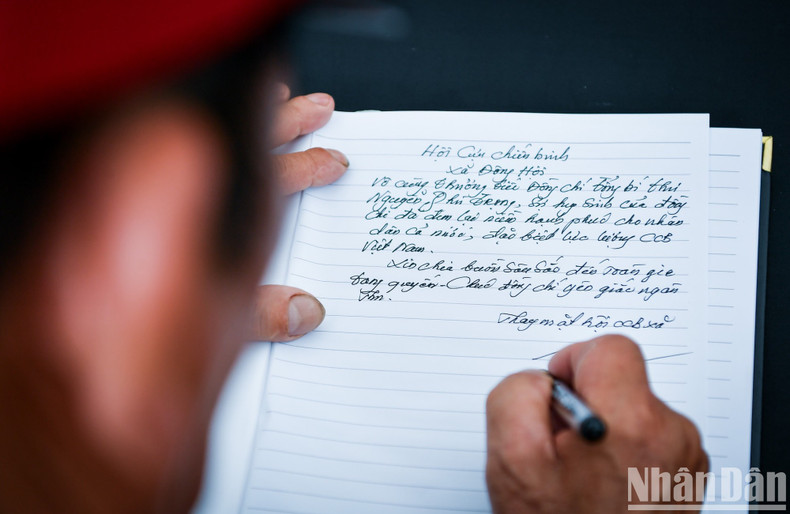 Hội Cựu chiến binh
xã Đông Hội
Vô cùng thương tiếc Đồng chí Tổng bí thư
Nguyễn Phú Trọng, sự hy sinh của đồng
chí đã đem lại niềm hạnh phúc cho nhân
dân cả nước, đặc biệt lực lượng CCB
Việt Nam.
Xin chia buồn sâu sắc đến toàn gia
tang quyến - Chúc đồng chí yên giấc ngàn
thu.
Thay mặt hội CCB xã
Nhân Dân